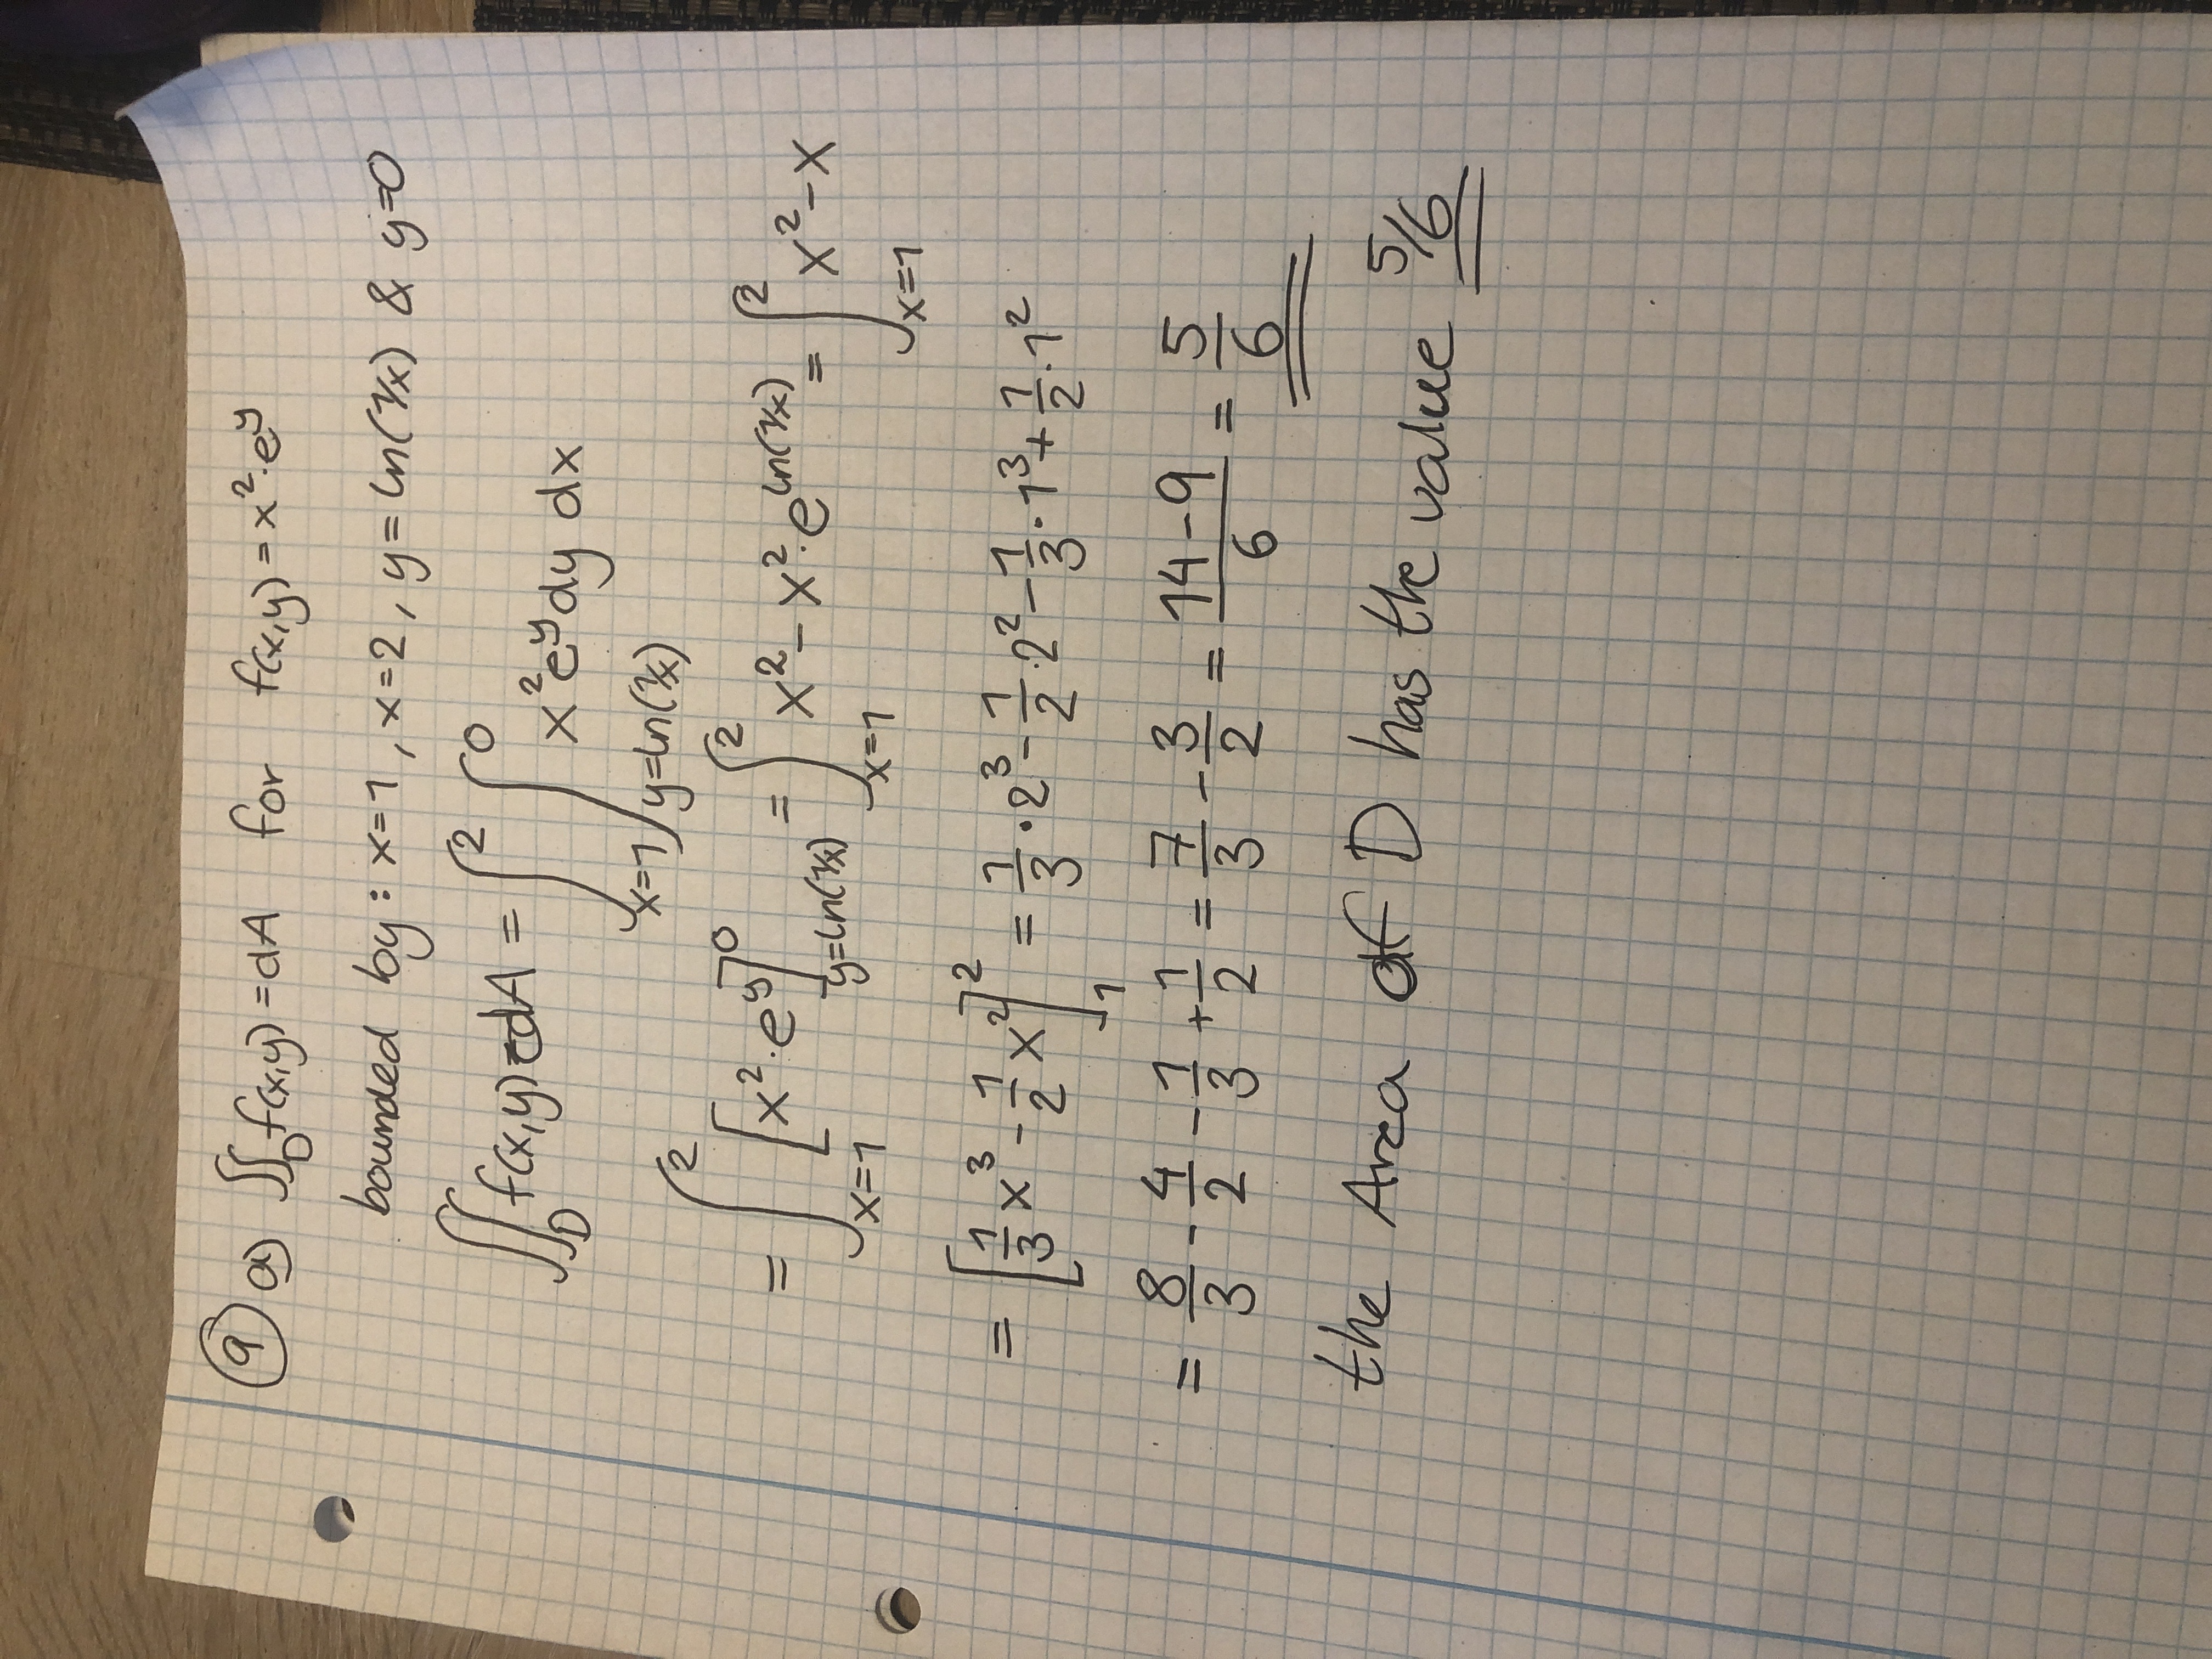 9 a) ∬_D f(x,y) = dA for f(x,y) = x²·e^y
bounded by: x=1, x=2, y=ln(1/x) & y=0
∬_D f(x,y) dA = ∫_{x=1}^{2} ∫_{y=ln(1/x)}^{0} x² e^y dy dx
= ∫_{x=1}^{2} [x²·e^y]_{y=ln(1/x)}^{0} = ∫_{x=1}^{2} x² - x²·e^{ln(1/x)} = ∫_{x=1}^{2} x² - x
= [1/3 x³ - 1/2 x²]_1^2 = 1/3 · 2³ - 1/2 · 2² - 1/3 · 1³ + 1/2 · 1²
= 8/3 - 4/2 - 1/3 + 1/2 = 7/3 - 3/2 = (14-9)/6 = 5/6
the Area of D has the value 5/6